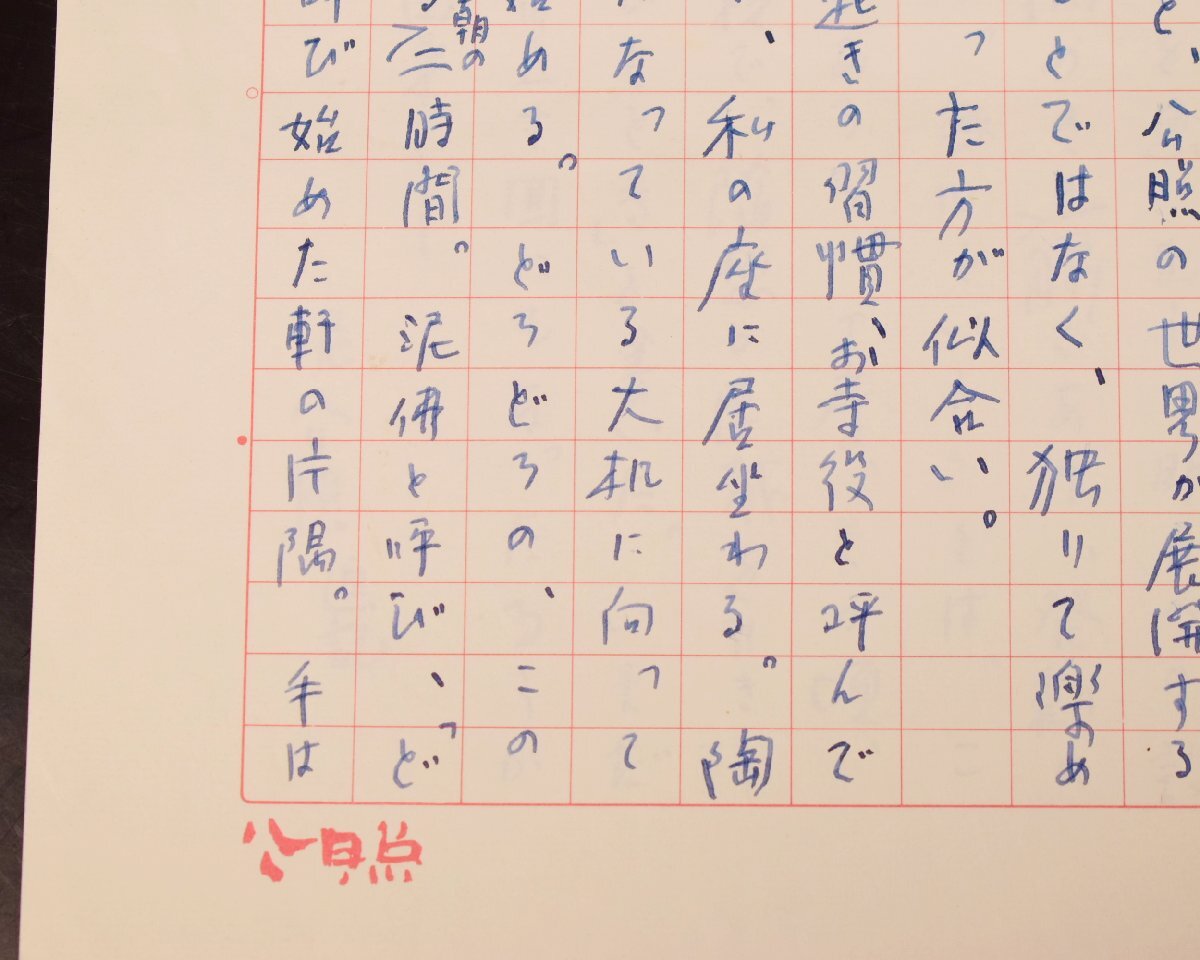 と、公照の世界が展開する
とではなく、独りて楽め
った方が似合い。
きの習慣、お寺役と呼んで
、私の座に居坐わる。陶
なっている大机に向って
める。どろどろの、この
朝の時間。泥佛と呼び、「ど
び始めた軒の片隅。手は